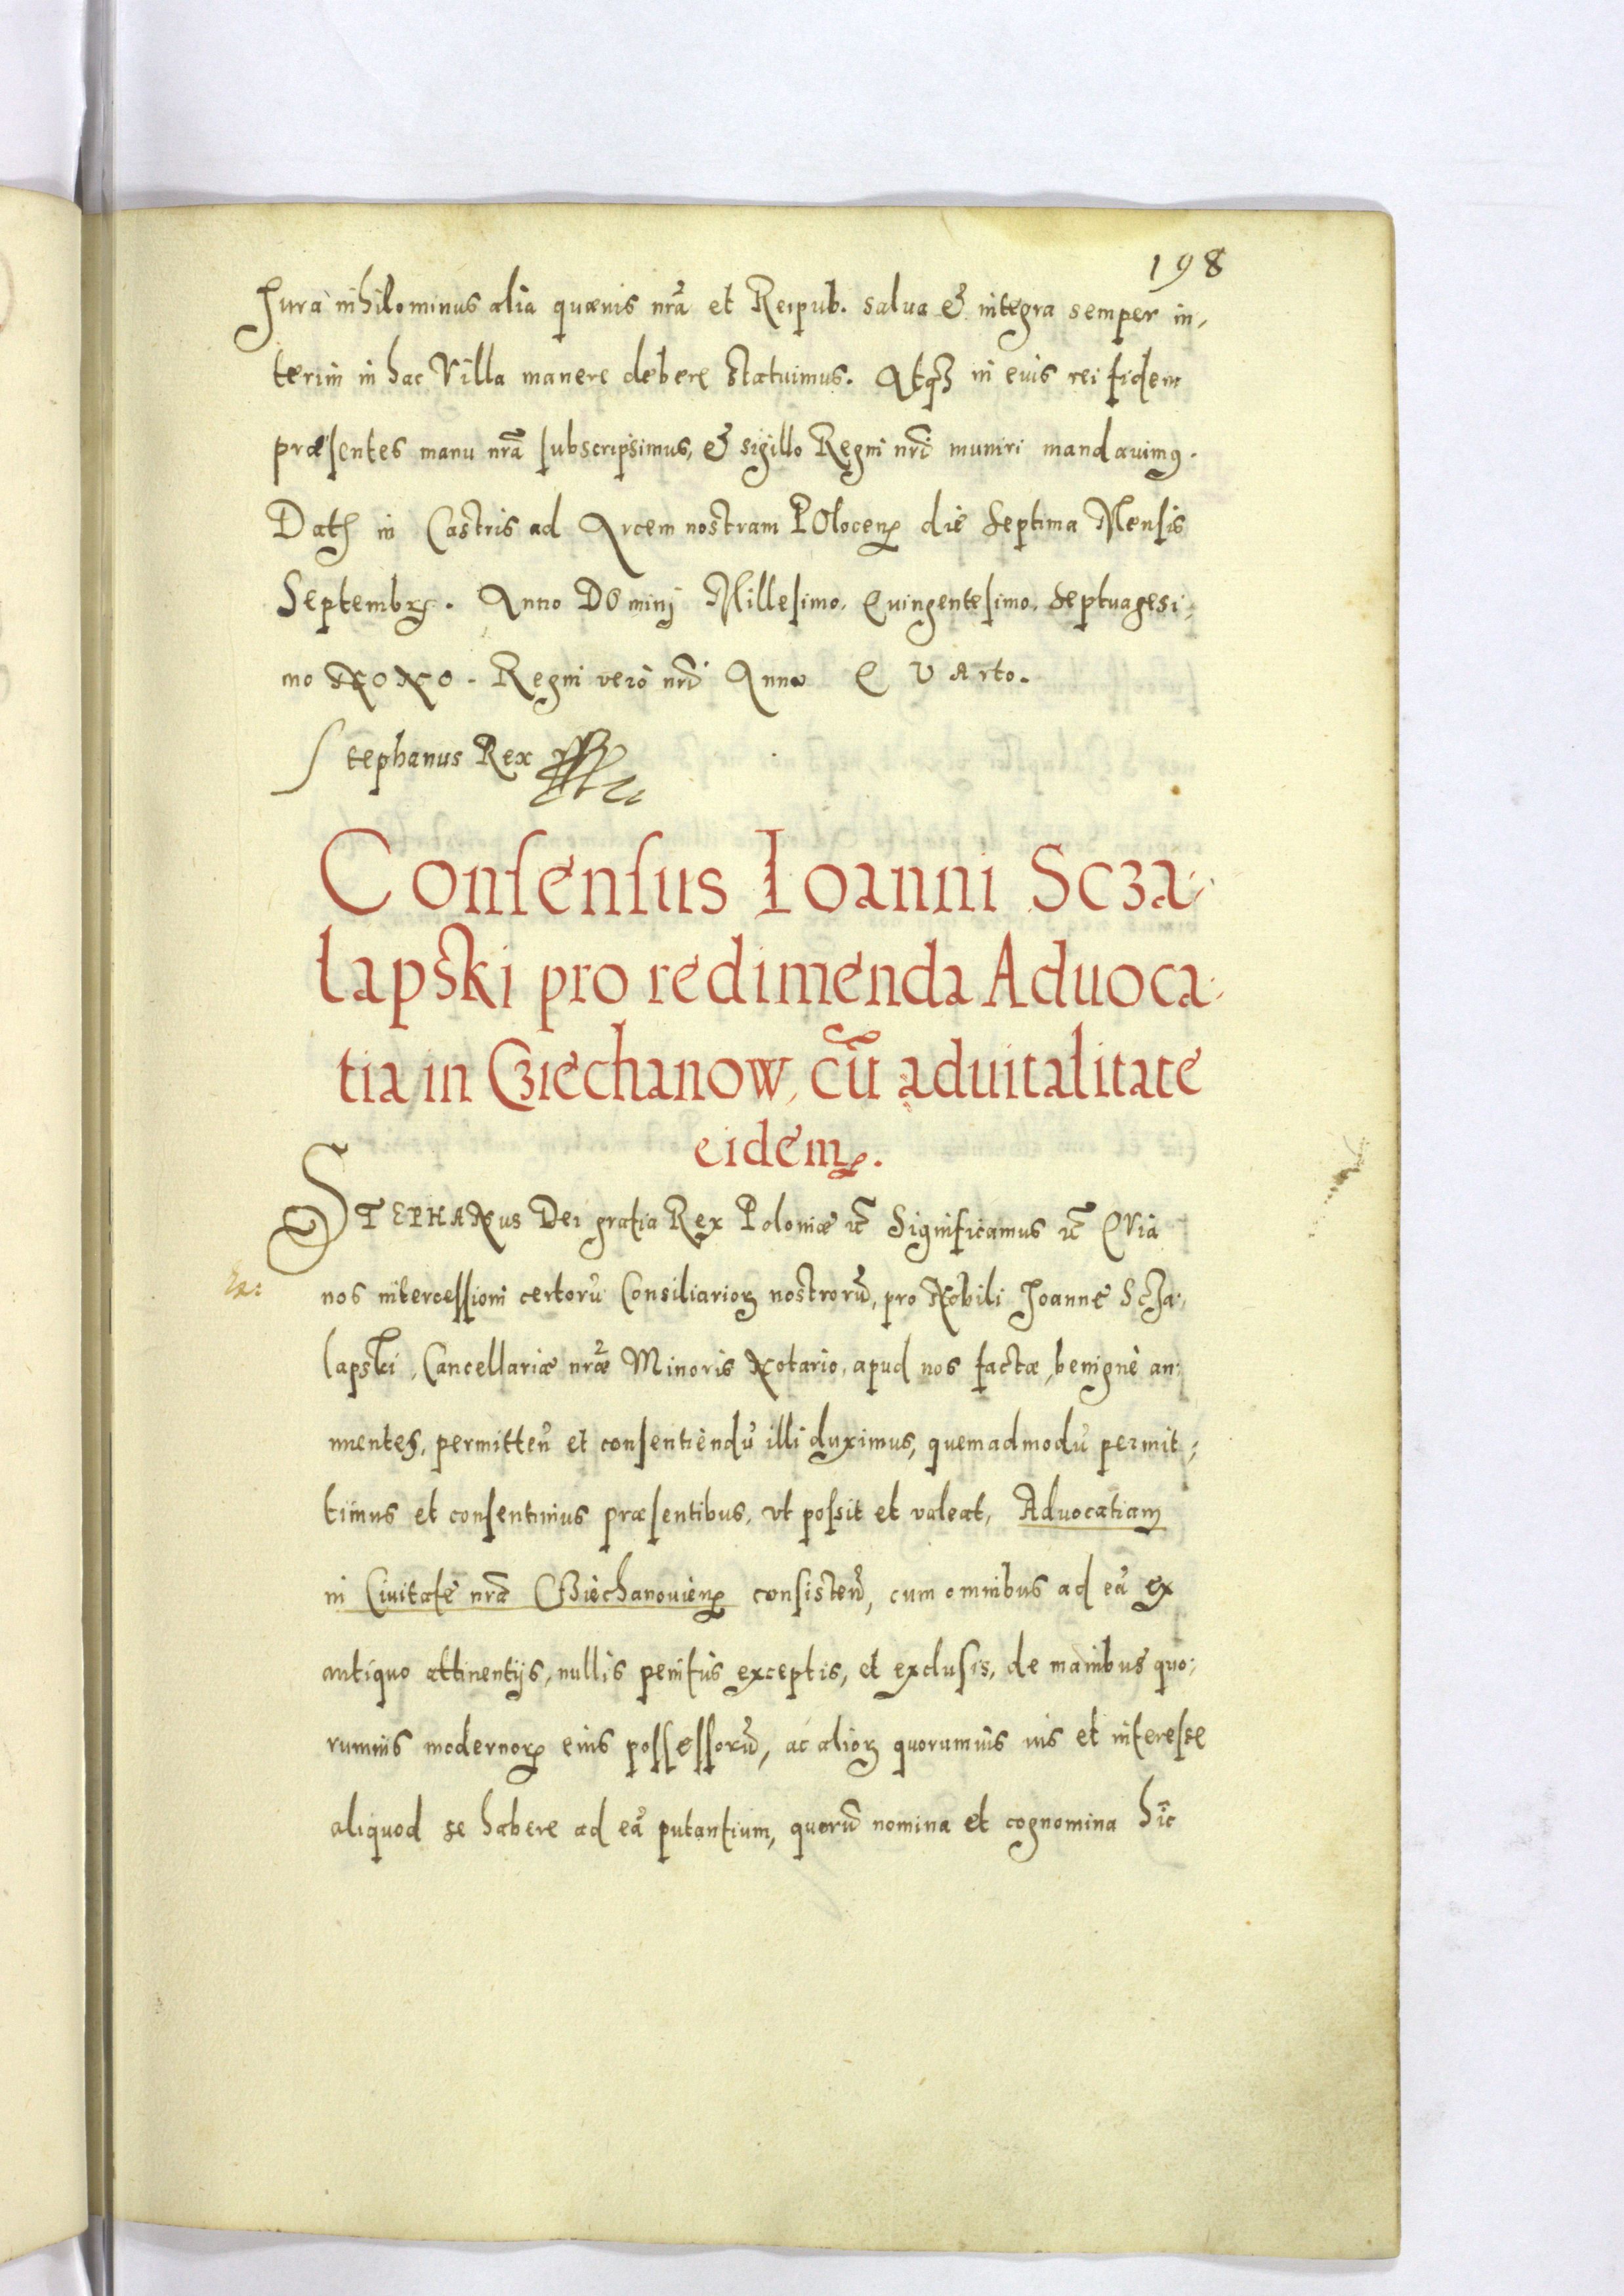 198
Jura nihilominus alia quævis nrã et Reipub. salua & integra semper in,
terim in hac Villa manere debere statuimus. Atqȝ in euis rei fidem
præsentes manu nrã subscripsimus, & sigillo Regni nrĩ muniri mandauimꝯ.
Datꝭ in Castris ad Arcem nostram POlocenꝭ die Septima Mensis
Septembrꝭ. Anno DOminj Millesimo, Quingentesimo, Septuagesi,
mo NONO. Regni verò nrĩ Anno QUArto.
Stephanus Rex
Consensus Ioanni Scza,
lapski pro redimenda Aduoca,
tia in Cziechanow, cũ aduitalitate
eidemꝭ.
STEPHANus Dei gratia Rex Poloniæ ꝛc̃ Significamus ꝛc̃ QVia
nos intercessioni certorũ Consiliarioꝝ nostrorũ, pro Nobili Joanne Scza,
lapski, Cancellariæ nræ̃ Minoris Notario, apud nos factæ, benignè an,
nuentes, permittenũ et consentiendũ illi duximus, quemadmodũ permit,
timus et consentimus præsentibus, vt possit et valeat, Aduocatiam
in Ciuitate nrã Cziechanouienꝭ consistenũ, cum omnibus ad eã ex
antiquo attinentijs, nullis penitùs exceptis, et exclusis, de manibus quo,
rumuis modernoꝝ eius possessorũ, ac alioꝝ quorumuis ius et interesse
aliquod se habere ad eã putantium, quorũ nomina et cognomina hîc